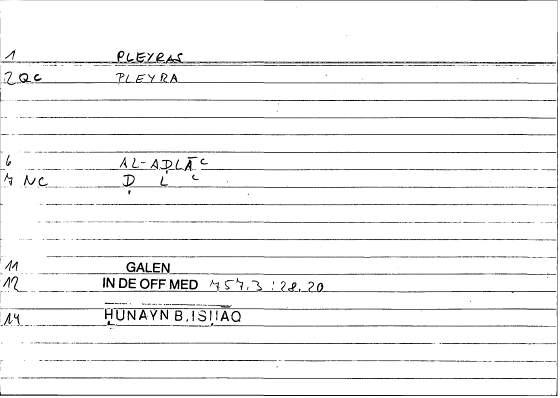 1 PLEYRAS
2 QC PLEYRA
6 AL-AḌLĀʿ
7 NC Ḍ L ʿ
11 GALEN
12 IN DE OFF MED 757.3 : 28.20
14 ḤUNAYN B. ISḤAQ